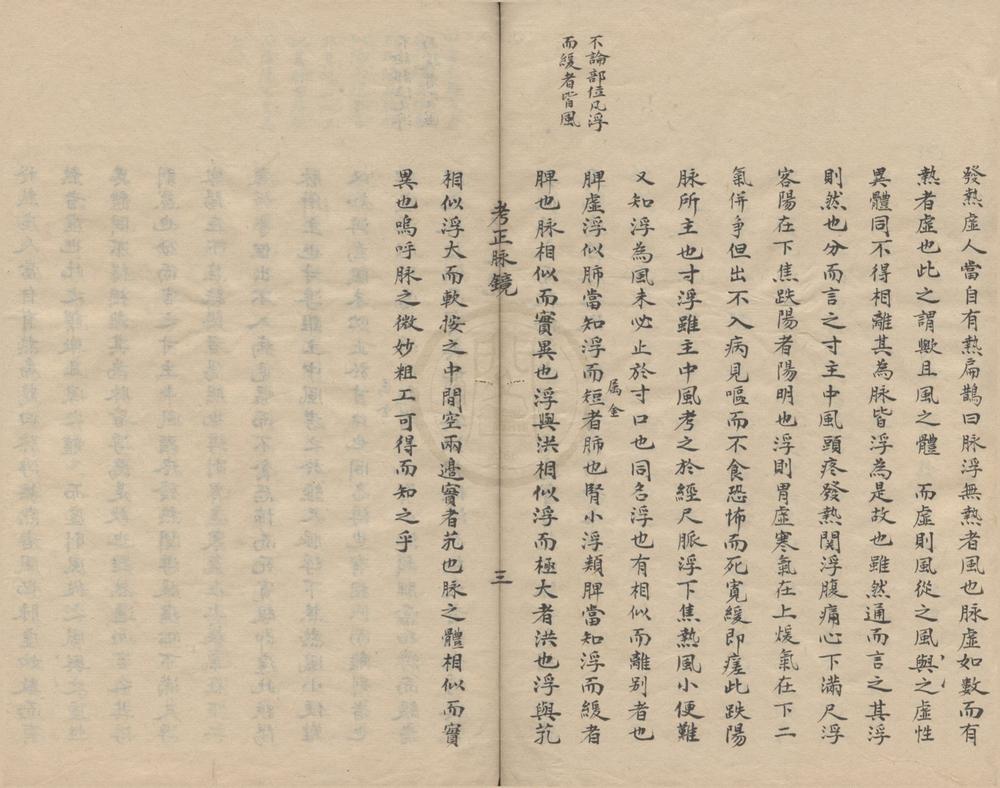 不論部位凡浮
而緩者皆風
發熱虛人當自有熱扁鵲曰脉浮無熱者風也脉虛如數而有
熱者虛也此之謂歟且風之體　而虛則風從之風與之虛性
異體同不得相離其為脉皆浮為是故也雖然通而言之其浮
則然也分而言之寸主中風頭疼發熱関浮腹痛心下滿尺浮
客陽在下焦趺陽者陽明也浮則胃虛寒氣在上煖氣在下二
氣併爭但出不入病見嘔而不食恐怖而死寛緩即瘥此趺陽
脉所主也寸浮雖主中風考之於經尺脈浮下焦熱風小便難
又知浮為風未必止於寸口也同名浮也有相似而離别者也
属金
脾虛浮似肺當知浮而短者肺也腎小浮類脾當知浮而緩者
脾也脉相似而實異也浮與洪相似浮而極大者洪也浮與芤
考正脉鏡
三
相似浮大而軟按之中間空兩邉實者芤也脉之體相似而實
異也嗚呼脉之微妙粗工可得而知之乎